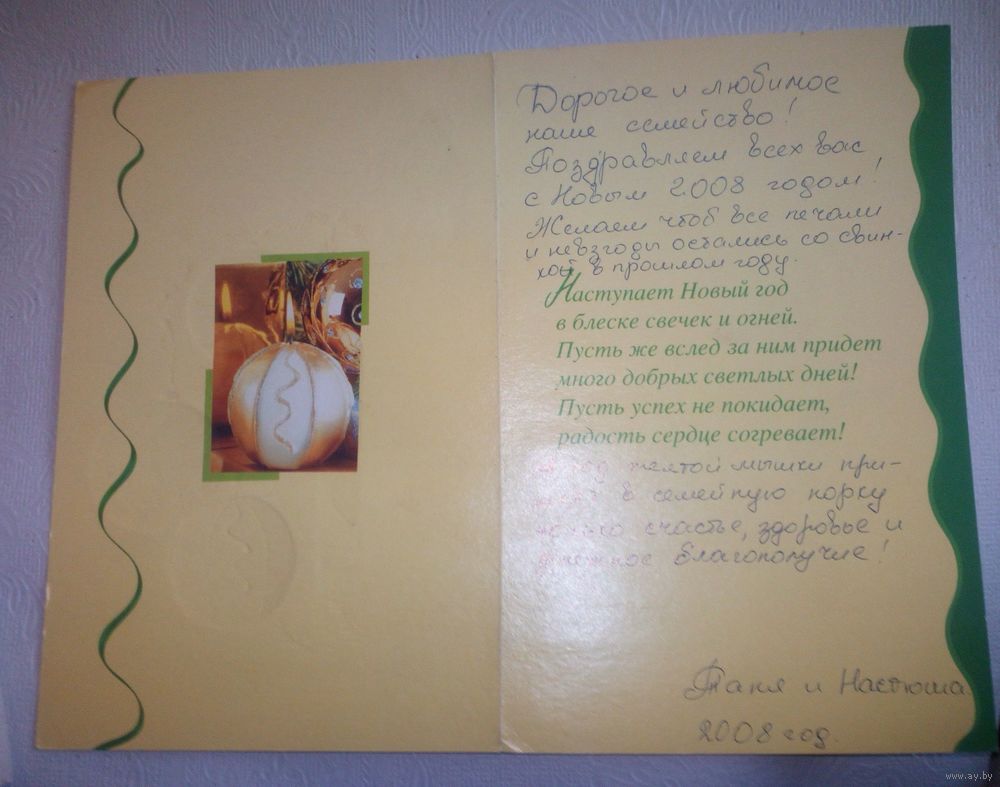 Дорогое и любимое
наше семейство!
Поздравляем всех вас
с Новым 2008 годом!
Желаем чтоб все печали
и невзгоды остались со свин-
кой в прошлом году.
Наступает Новый год
в блеске свечек и огней.
Пусть же вслед за ним придет
много добрых светлых дней!
Пусть успех не покидает,
радость сердце согревает!
А год желтой мышки при-
в семейную норку
счастье, здоровье и
благополучие!
Таня и Настюша
2008 год.
www.ay.by